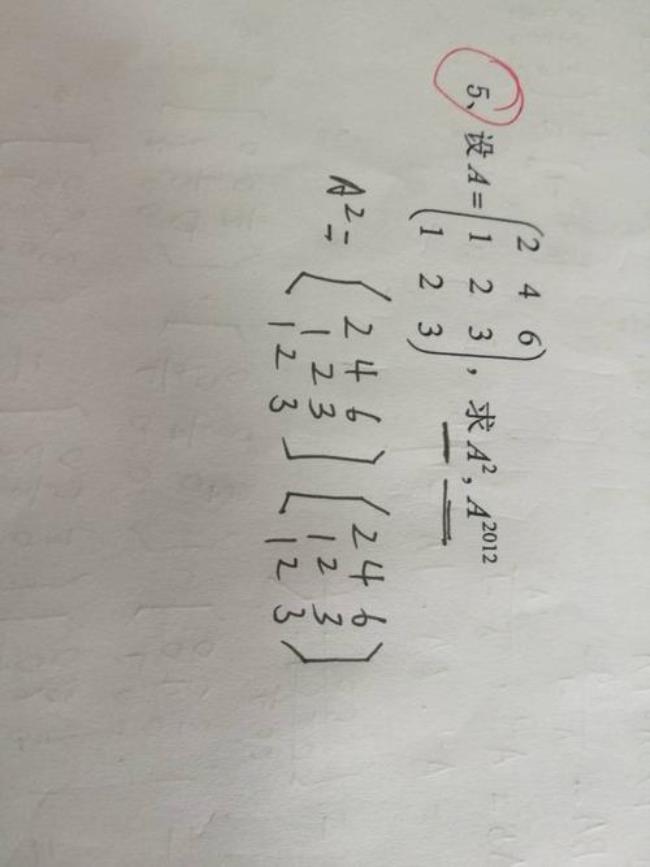 5、设 A = (2 4 6
1 2 3
1 2 3), 求 A², A²⁰¹²
A² = [2 4 6
1 2 3
1 2 3] [2 4 6
1 2 3
1 2 3]